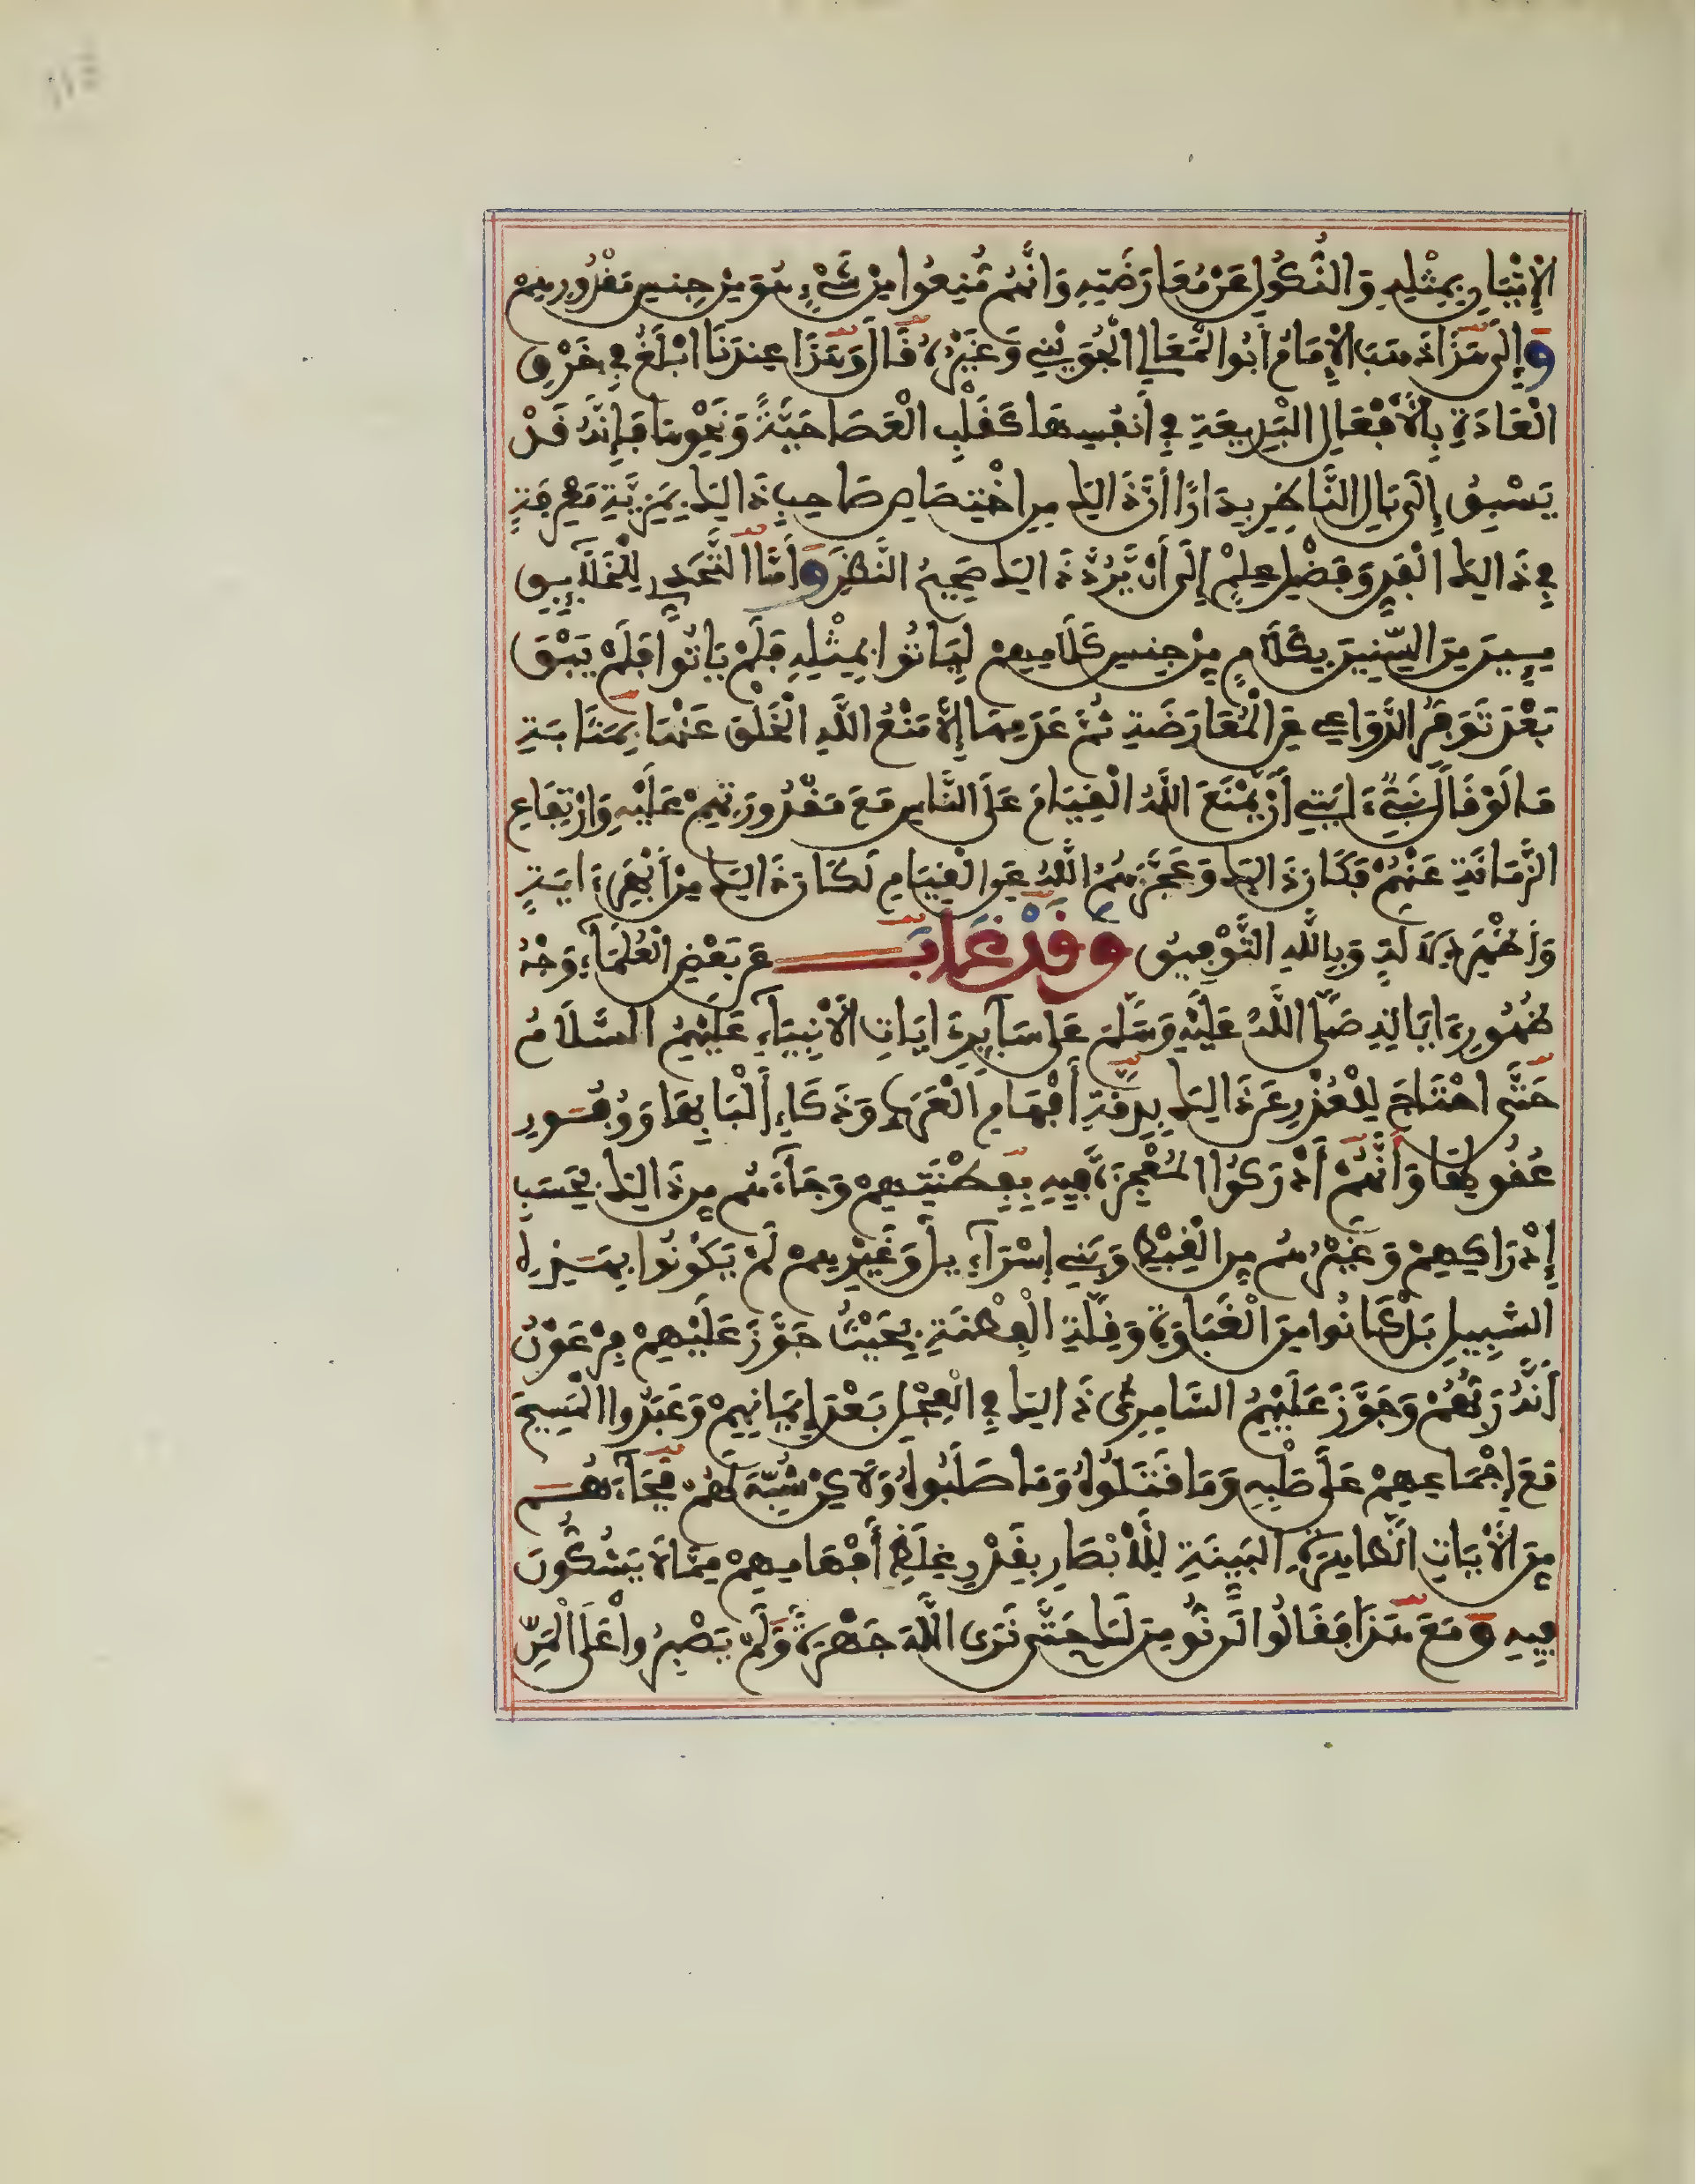 الْإِتْيَانِ بِمِثْلِهِ وَالنُّكُولِ عَنْ مُعَارَضَتِهِ وَأَنَّهُمْ مُنِعُوا مِنْ شَيْءٍ هُوَ مِنْ جِنْسِ مَقْدُورِهِمْ
وَإِلَى هَذَا ذَهَبَ الْإِمَامُ أَبُو الْمَعَالِي الْجُوَيْنِي وَغَيْرُهُ قَالَ وَهَذَا عِنْدَنَا أَبْلَغُ فِي خَرْقِ
الْعَادَةِ بِالْأَفْعَالِ الْبَدِيعَةِ فِي أَنْفُسِهَا كَقَلْبِ الْعَصَا حَيَّةً وَنَحْوِهَا فَإِنَّهُ قَدْ
يَسْبِقُ إِلَى بَالِ النَّاظِرِ بِدَارًا أَنَّ ذَالِكَ مِنِ اخْتِصَاصِ صَاحِبِ ذَالِكَ بِمَزِيَّةِ مَعْرِفَةٍ
فِي ذَالِكَ الْفَنِّ وَفَضْلِ عِلْمٍ إِلَى أَنْ يَرُدَّ ذَالِكَ صَحِيحُ النَّظَرِ وَأَمَّا التَّحَدِّي لِلْخَلَائِقِ
مِئِينَ مِنَ السِّنِينَ بِكَلَامٍ مِنْ جِنْسِ كَلَامِهِمْ لِيَاتُوا بِمِثْلِهِ فَلَمْ يَاتُوا فَلَمْ يَبْقَ
بَعْدَ تَوَفُّرِ الدَّوَاعِي عَلَى الْمُعَارَضَةِ ثُمَّ عَدَمِهَا إِلَّا مَنْعُ اللَّهِ الْخَلْقَ عَنْهَا بِمَثَابَةِ
مَا لَوْ قَالَ نَبِيٌّ ءَايَتِي أَنْ يَمْنَعَ اللَّهُ الْقِيَامَ عَلَى النَّاسِ مَعَ مَقْدُورَتِهِمْ عَلَيْهِ وَارْتِفَاعِ
الزَّمَانَةِ عَنْهُمْ فَكَانَ ذَالِكَ وَعَجَّزَهُمُ اللَّهُ عَنِ الْقِيَامِ لَكَانَ ذَالِكَ مِنْ أَبْهَرِ ءَايَةٍ
وَأَظْهَرِ دَلَالَةٍ وَبِاللَّهِ التَّوْفِيقُ وَقَدْ غَابَ عَنْ بَعْضِ الْعُلَمَاءِ وَجْهُ
ظُهُورِ ءَايَاتِهِ صَلَّى اللَّهُ عَلَيْهِ وَسَلَّمَ عَلَى سَائِرِ ءَايَاتِ الْأَنْبِيَاءِ عَلَيْهِمُ السَّلَامُ
حَتَّى احْتَاجَ لِلْعُذْرِ عَنْ ذَالِكَ بِدِقَّةِ أَفْهَامِ الْعَرَبِ وَذَكَاءِ أَلْبَابِهَا وَوُفُورِ
عُقُولِهَا وَأَنَّهُمْ أَدْرَكُوا الْمُعْجِزَةَ فِيهِ بِفِطْنَتِهِمْ وَجَاءَهُمْ مِنْ ذَالِكَ بِحَسَبِ
إِدْرَاكِهِمْ وَغَيْرُهُمْ مِنَ الْقِبْطِ وَبَنِي إِسْرَاءِيلَ وَغَيْرِهِمْ لَمْ يَكُونُوا بِهَذِهِ
السَّبِيلِ بَلْ كَانُوا مِنَ الْغَبَاوَةِ وَقِلَّةِ الْفِطْنَةِ بِحَيْثُ جَوَّزَ عَلَيْهِمْ فِرْعَوْنُ
أَنَّهُ رَبُّهُمْ وَجَوَّزَ عَلَيْهِمُ السَّامِرِيُّ ذَالِكَ فِي الْعِجْلِ بَعْدَ إِيمَانِهِمْ وَعَبَدُوا الْمَسِيحَ
مَعَ إِجْمَاعِهِمْ عَلَى صَلْبِهِ وَمَا قَتَلُوهُ وَمَا صَلَبُوهُ وَلَاكِنْ شُبِّهَ لَهُمْ فَجَاءَهُمْ
مِنَ الْآيَاتِ الظَّاهِرَةِ الْبَيِّنَةِ لِلْأَبْصَارِ بِقَدْرِ غِلَظِ أَفْهَامِهِمْ مِمَّا لَا يَشُكُّونَ
فِيهِ وَمَعَ هَذَا فَقَالُوا لَنْ نُومِنَ لَكَ حَتَّى نَرَى اللَّهَ جَهْرَةً وَلَمْ يَصْبِرُوا عَلَى الْمَنِّ